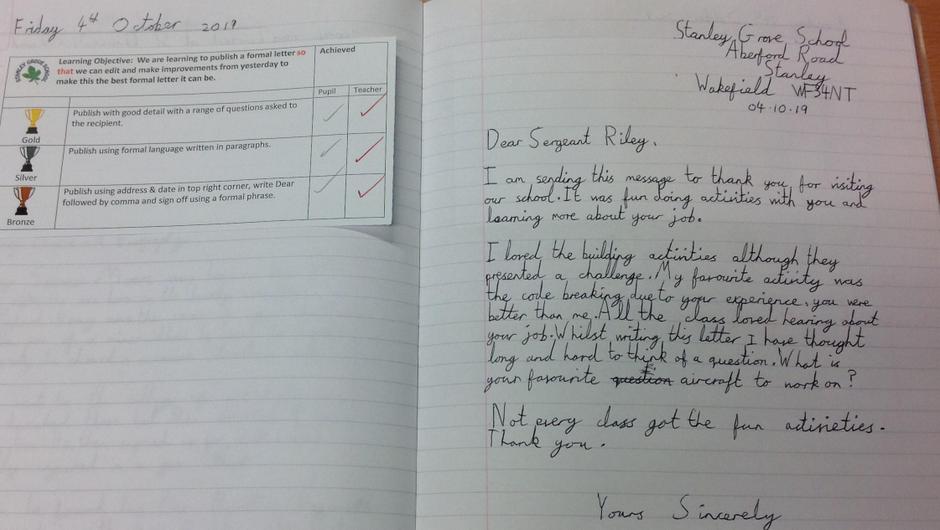 Friday 4th October 2019
STANLEY GROVE SCHOOL
Learning Objective: We are learning to publish a formal letter so
that we can edit and make improvements from yesterday to
make this the best formal letter it can be.
Achieved
Pupil
Teacher
Gold
Publish with good detail with a range of questions asked to
the recipient.
Silver
Publish using formal language written in paragraphs.
Bronze
Publish using address & date in top right corner, write Dear
followed by comma and sign off using a formal phrase.
Stanley Grove School
Aberford Road
Stanley
Wakefield WF34NT
04.10.19
Dear Sergeant Riley,
I am sending this message to thank you for visiting
our school. It was fun doing activities with you and
learning more about your job.
I loved the building activities although they
presented a challenge. My favourite activity was
the code breaking, due to your experience, you were
better than me. All the class loved hearing about
your job. Whilst writing this letter I have thought
long and hard to think of a question. What is
your favourite question aircraft to work on?
Not every class got the fun activieties.
Thank you.
Yours Sincerely